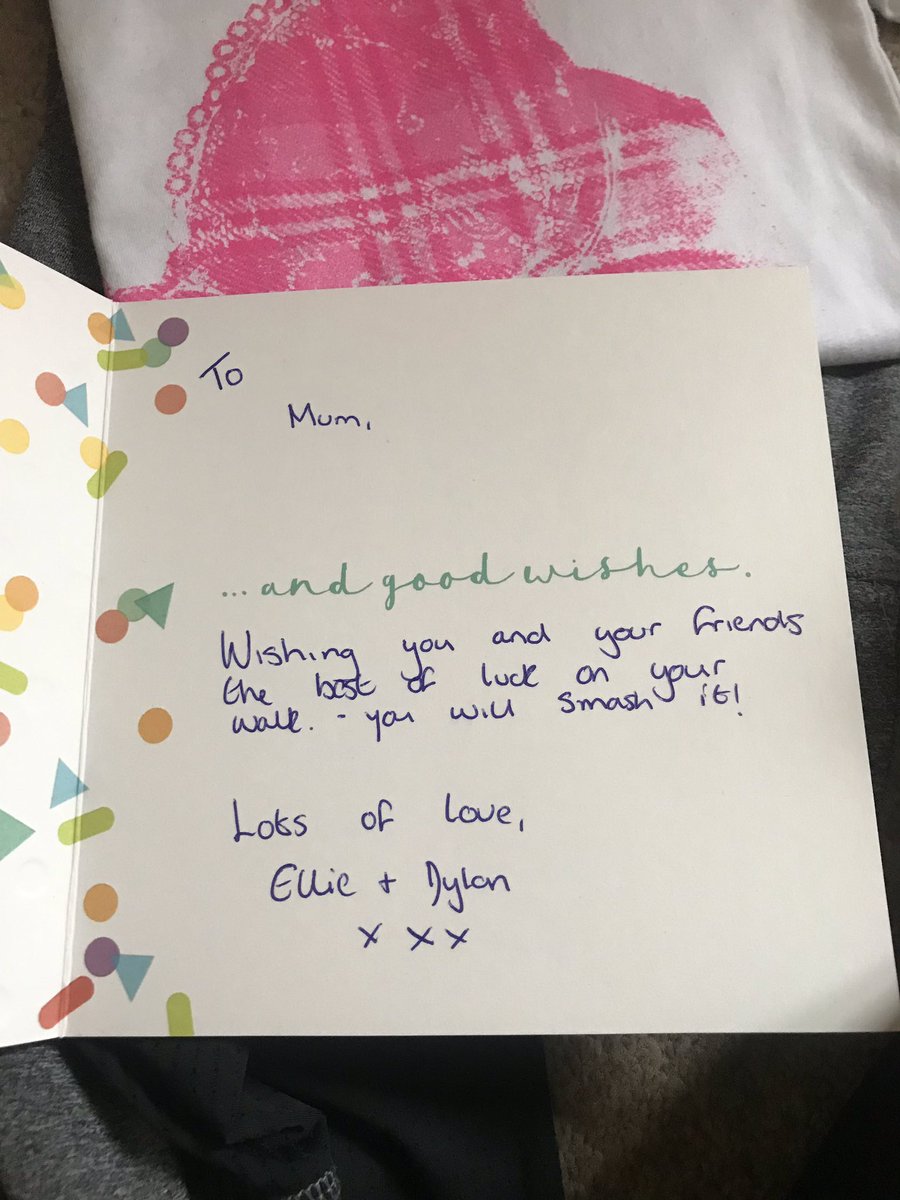 To
Mum,
... and good wishes.
Wishing you and your friends
the best of luck on your
walk. - you will smash it!
Lots of love,
Ellie + Dylan
x x x